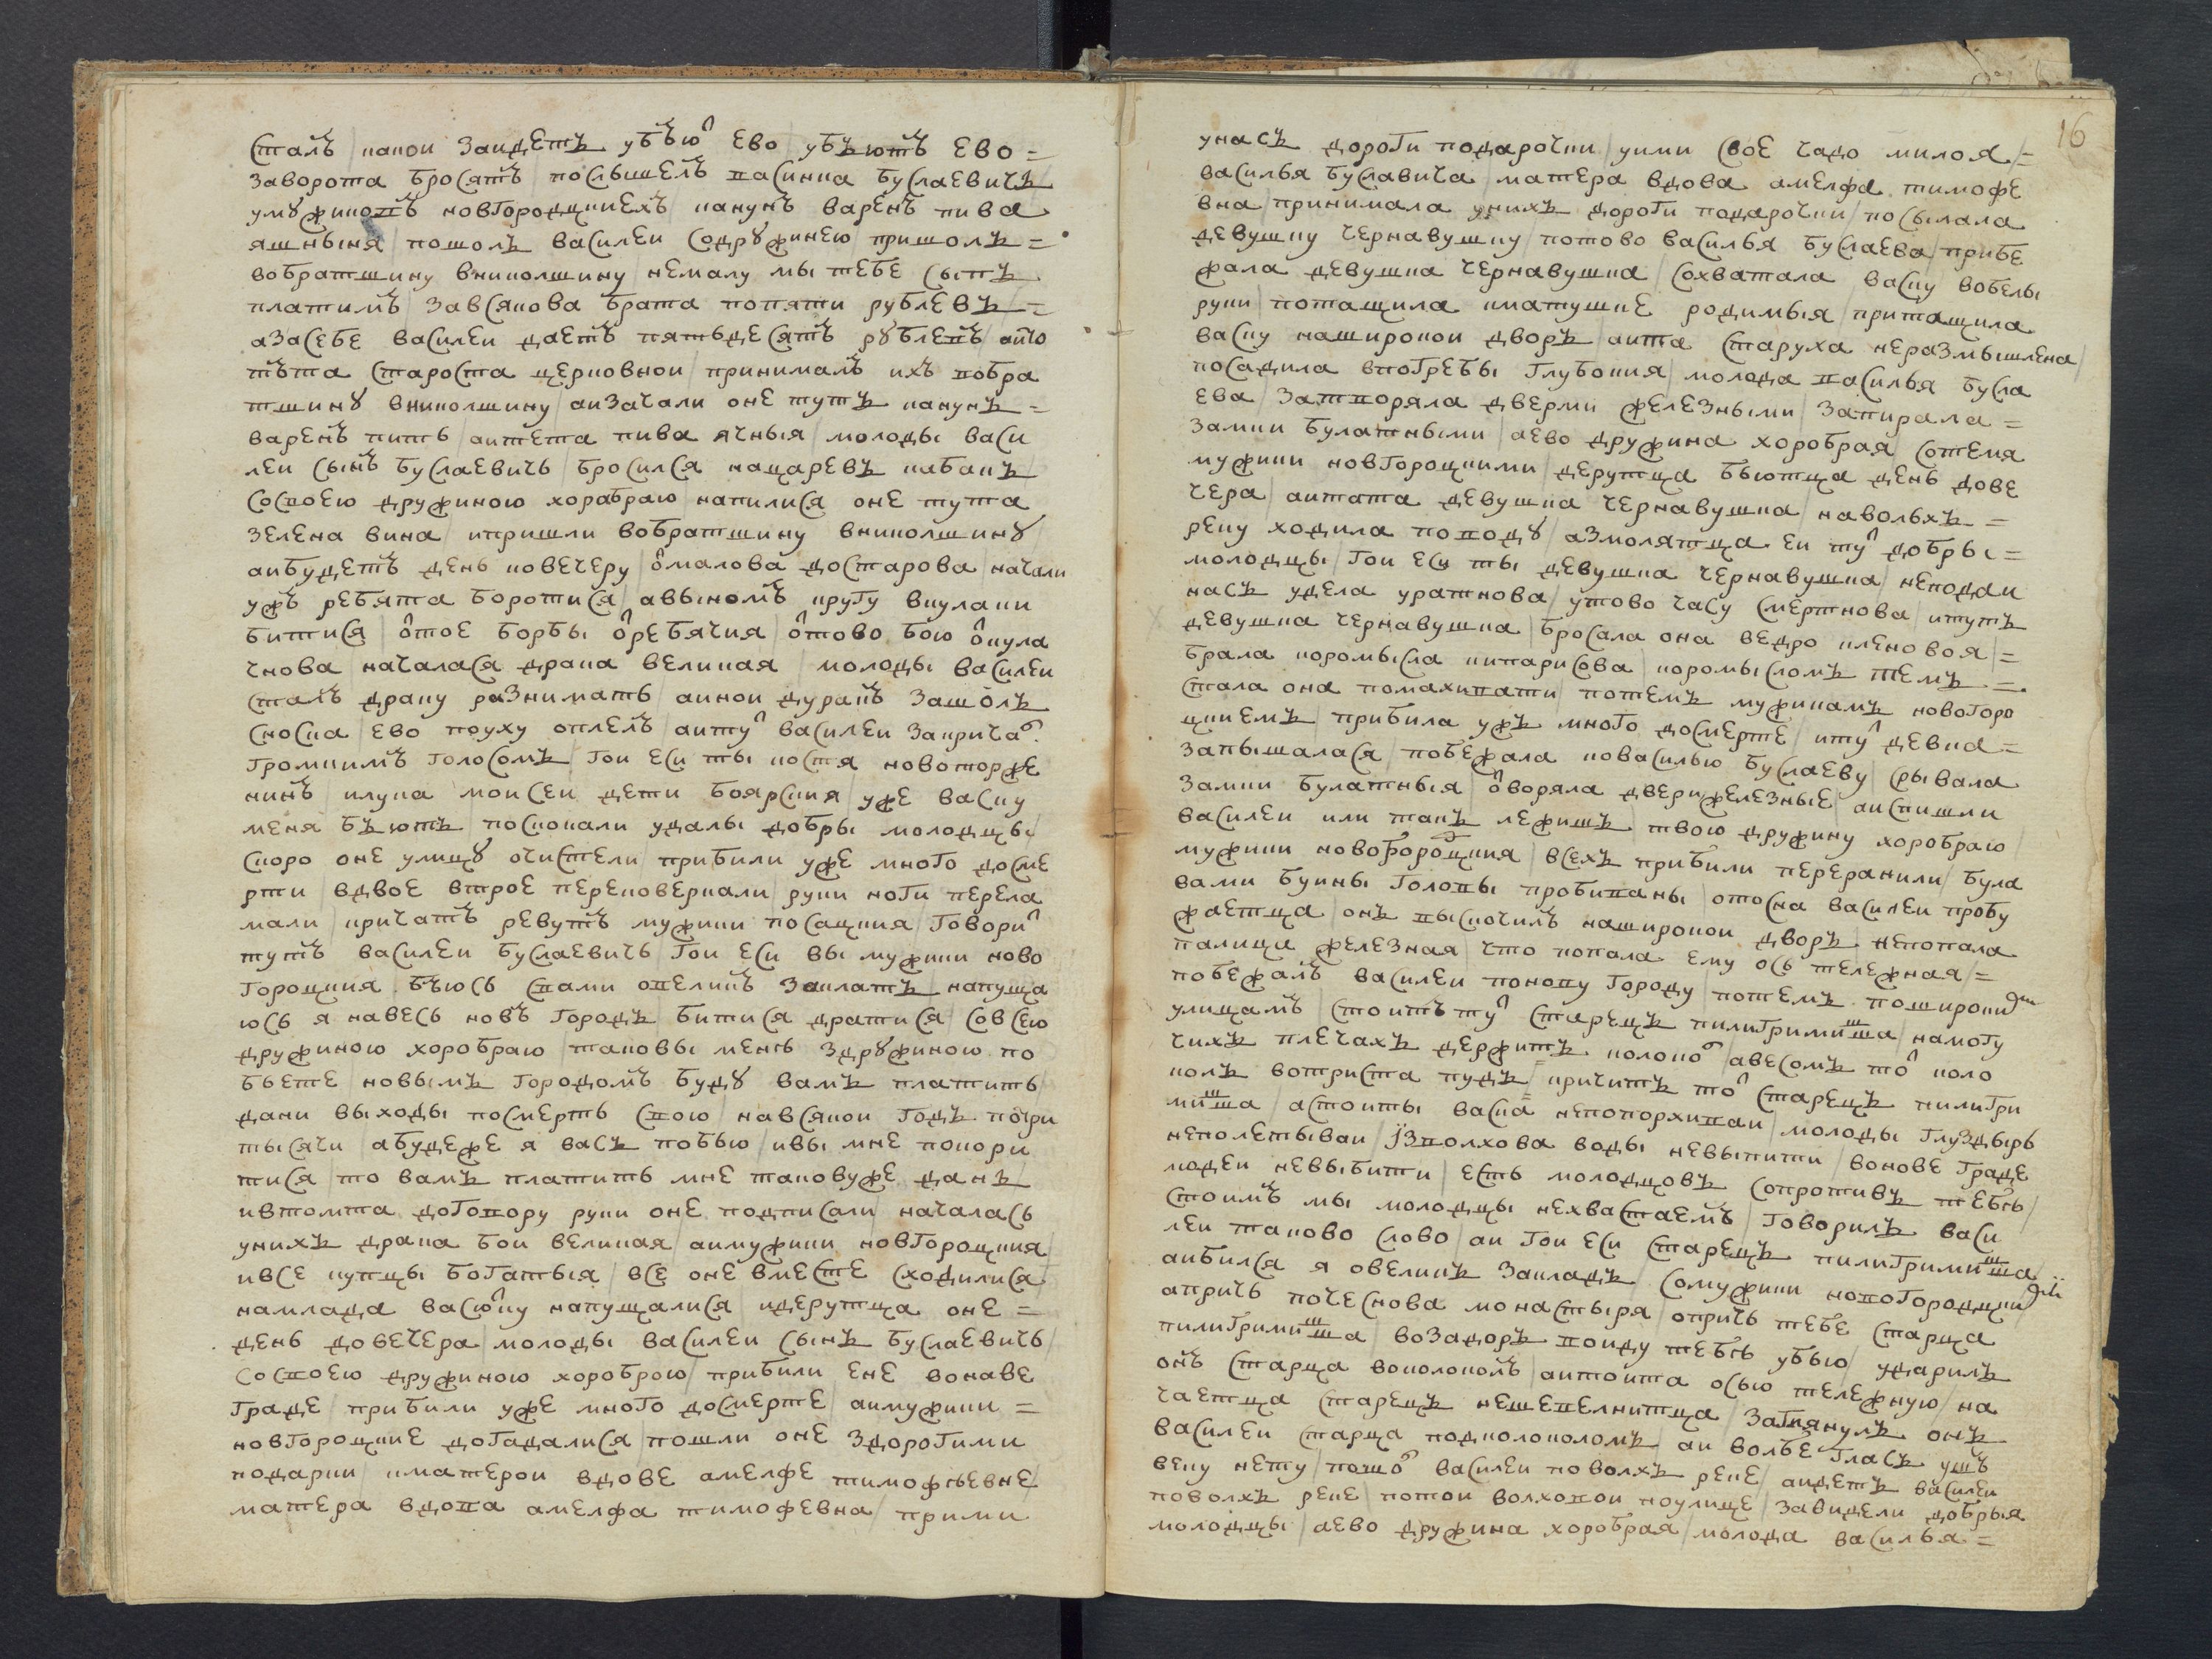 сталъ / какои зайдетъ убъю ево убьютъ ево =
заворота бросятъ / послышелъ васинка буслаевичь /
умужиковъ новгородцкиехъ / канунъ варенъ пива
яшныня / пошолъ василеи содружинею / пришолъ =
вобратшину вниколшину / немалу мы тебе сыпь
платимъ / завсякова брата попяти рублевъ / =
азасебе василеи даетъ пятьдесятъ рублевъ / аито
тъта староста церковнои / принималъ ихъ вобра
тшину вниколшину / аизачали оне тутъ канунъ =
варенъ пить / аитета пива ячныя / молоды васи
леи сынъ буслаевичь / бросился нацаревъ кабакъ
сосвоею дружиною хорабраю / напилися оне тута
зелена вина / ипришли вобратшину вниколшину /
аибудетъ день ковечеру / ômалова достарова / начали
ужъ ребята боротися / авыномъ кругу вкулаки
битися / ôтое борьбы ôребячия / ôтово бою ôкула
чнова началася драка великая / молоды василеи
сталъ драку разнимать / аинои дуракъ зашолъ
сноска / ево поуху оплелъ / аиту василеи закрича
громкимъ голосомъ / гои еси ты костя новоторже
нинъ / илука моисеи дети боярския / уже васку
меня бьютъ / поскокали удалы добры молодцы /
скоро оне улицу очистели / прибили уже много досме
рти / вдвое втрое перековеркали / руки ноги перела
мали / кричатъ ревутъ мужики посацкия / говори
тутъ василеи буслаевичь / гои еси вы мужики ново
гороцкия / бьюсь свами овеликъ закладъ / напуща
юсь я навесь новъ городъ / битися дратися / совсею
дружиною хоробраю / таковы меня здружиною по
бъете / новымъ городомъ буду вамъ платить /
дани выходы посмерть свою / навсякои годъ потри
тысячи / абудеже я васъ побью / ивы мне покори
тися / то вамъ платить мне таковуже дань /
ивтомта договору руки оне подписали / началась
унихъ драка бои великая / аимужики новгороцкия /
ивсе купцы богатыя / все оне вместе сходилися /
намлада васюку напущалися / идерутца оне =
день довечера / молоды василеи сынъ буслаевичь /
сосвоею дружиною хороброю / прибили ене вонаве
граде / прибили уже много досмерте / аимужики =
новгороцкие догадалися / пошли оне здорогими
подарки / кматерои вдове амелфе тимофьевне /
матера вдова амелфа тимофевна / прими
16
унасъ дороги подарочки / уими свое чадо милоя / =
василья буславича / матера вдова амелфа тимофе
вна / принимала унихъ дороги подарочки / посылала
девушку чернавушку / потово василья буслаева / прибе
жала девушка чернавушка / сохватала васку вобелы
руки / потащила кматушке родимыя / притащила
васку наширокои дворъ / аитта старуха неразмышлена /
посадила впогребы глубокия / молода василья бусла
ева / затворяла дверми железными / запирала =
замки булатными / аево дружина хоробрая / сотемя
мужики новгороцкими / дерутца бьютца день дове
чера / аитата девушка чернавушка / навольхъ =
реку ходила поводу / азмолятца еи ту добры =
молодцы / гои еси ты девушка чернавушка / неподаи
насъ удела уратнова / утово часу смертнова / итутъ
девушка чернавушка / бросала она ведро кленовоя / =
брала коромысла кипарисова / коромысломъ темъ =
стала она помахивати / потемъ мужикамъ новогоро
цкиемъ / прибила ужъ много досмерте / иту девка =
запышалася / побежала ковасилью буслаеву / срывала
замки булатныя / ôворяла двери железные / аиспишли
василеи или такъ лежишъ / твою дружину хоробраю /
мужики новогороцкия / всехъ прибили переранили / була
вами буины головы пробиваны / отосна василеи пробу
жаетца / онъ выскочилъ наширокои дворъ / непопала
палица железная / что попала ему ось тележная / =
побежалъ василеи понову городу / потемъ поширокимъ
улицамъ / стоитъ ту старецъ пилигримишша / намогу
чихъ плечахъ держитъ колоко / авесомъ то коло
колъ вотриста пудъ / кричитъ то старецъ пилигри
мишша / астоиты васка непопорхиваи / молоды глуздырь
неполетываи / ïзволхова воды невыпити / вонове граде
людеи невыбити / есть молодцовъ сопротивъ тебя /
стоимъ мы молодцы нехвастаемъ / говорилъ васи
леи таково слово / аи гои еси старецъ пилигримишша /
аибился я овеликъ закладъ / сомужики новогородцкими
апричь почеснова монастыря / опричь тебе старца
пилигримишша / возадоръ воиду тебя убью / ударилъ
онъ старца воколоколъ / аитоита осью тележную / на
чаетца старецъ нешевелнитца / заглянулъ онъ
василеи старца подколоколомъ / аи вольбе гласъ ушъ
веку нету / пошо василеи поволхъ реке / аидетъ василеи
поволхъ реке / потои волховои поулице / завидели добрыя
молодцы / аево дружина хоробрая / молода василья =